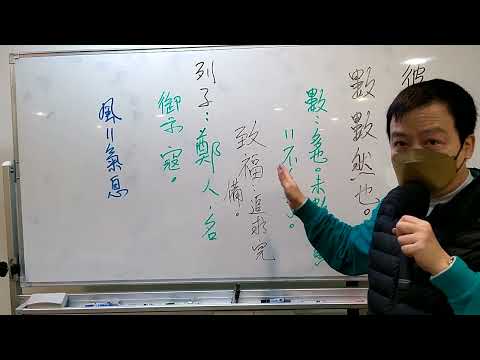 彼
數數然也。
數：多也。未
＝不
致福：追求完
備。
列子：鄭人，名
御寇。
風＝氣息